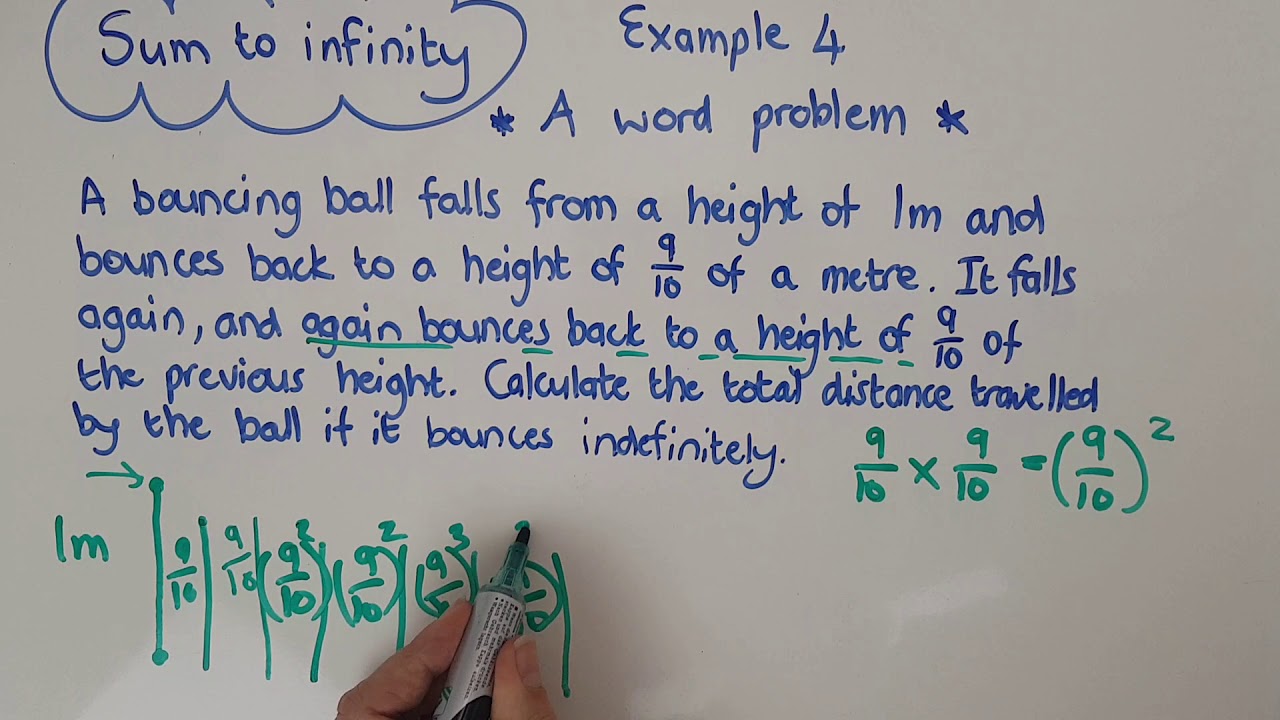 Sum to infinity
Example 4
* A word problem *
A bouncing ball falls from a height of 1m and
bounces back to a height of 9/10 of a metre. It falls
again, and again bounces back to a height of 9/10 of
the previous height. Calculate the total distance travelled
by the ball if it bounces indefinitely.
9/10 × 9/10 = (9/10)²
→
1m 9/10 9/10 (9/10)² (9/10)²